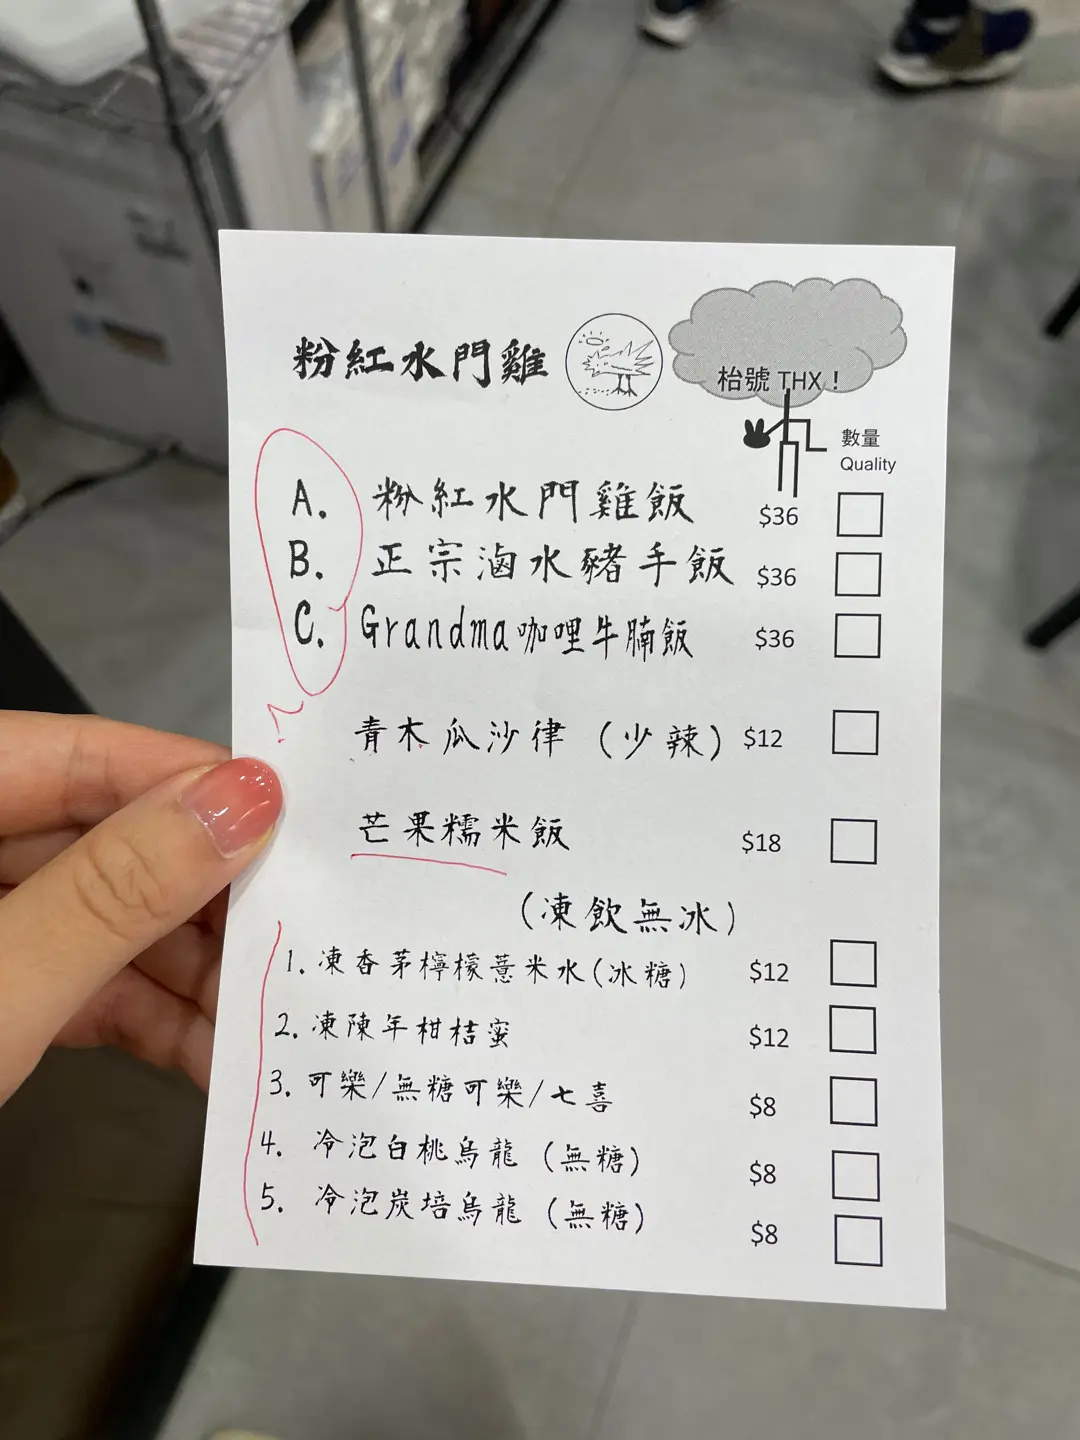 粉紅水門雞
枱號 THX！
數量
Quality
A. 粉紅水門雞飯 $36
B. 正宗滷水豬手飯 $36
C. Grandma咖哩牛腩飯 $36
青木瓜沙律（少辣） $12
芒果糯米飯 $18
（凍飲無冰）
1. 凍香茅檸檬薏米水（冰糖） $12
2. 凍陳年柑桔蜜 $12
3. 可樂/無糖可樂/七喜 $8
4. 冷泡白桃烏龍（無糖） $8
5. 冷泡炭培烏龍（無糖） $8